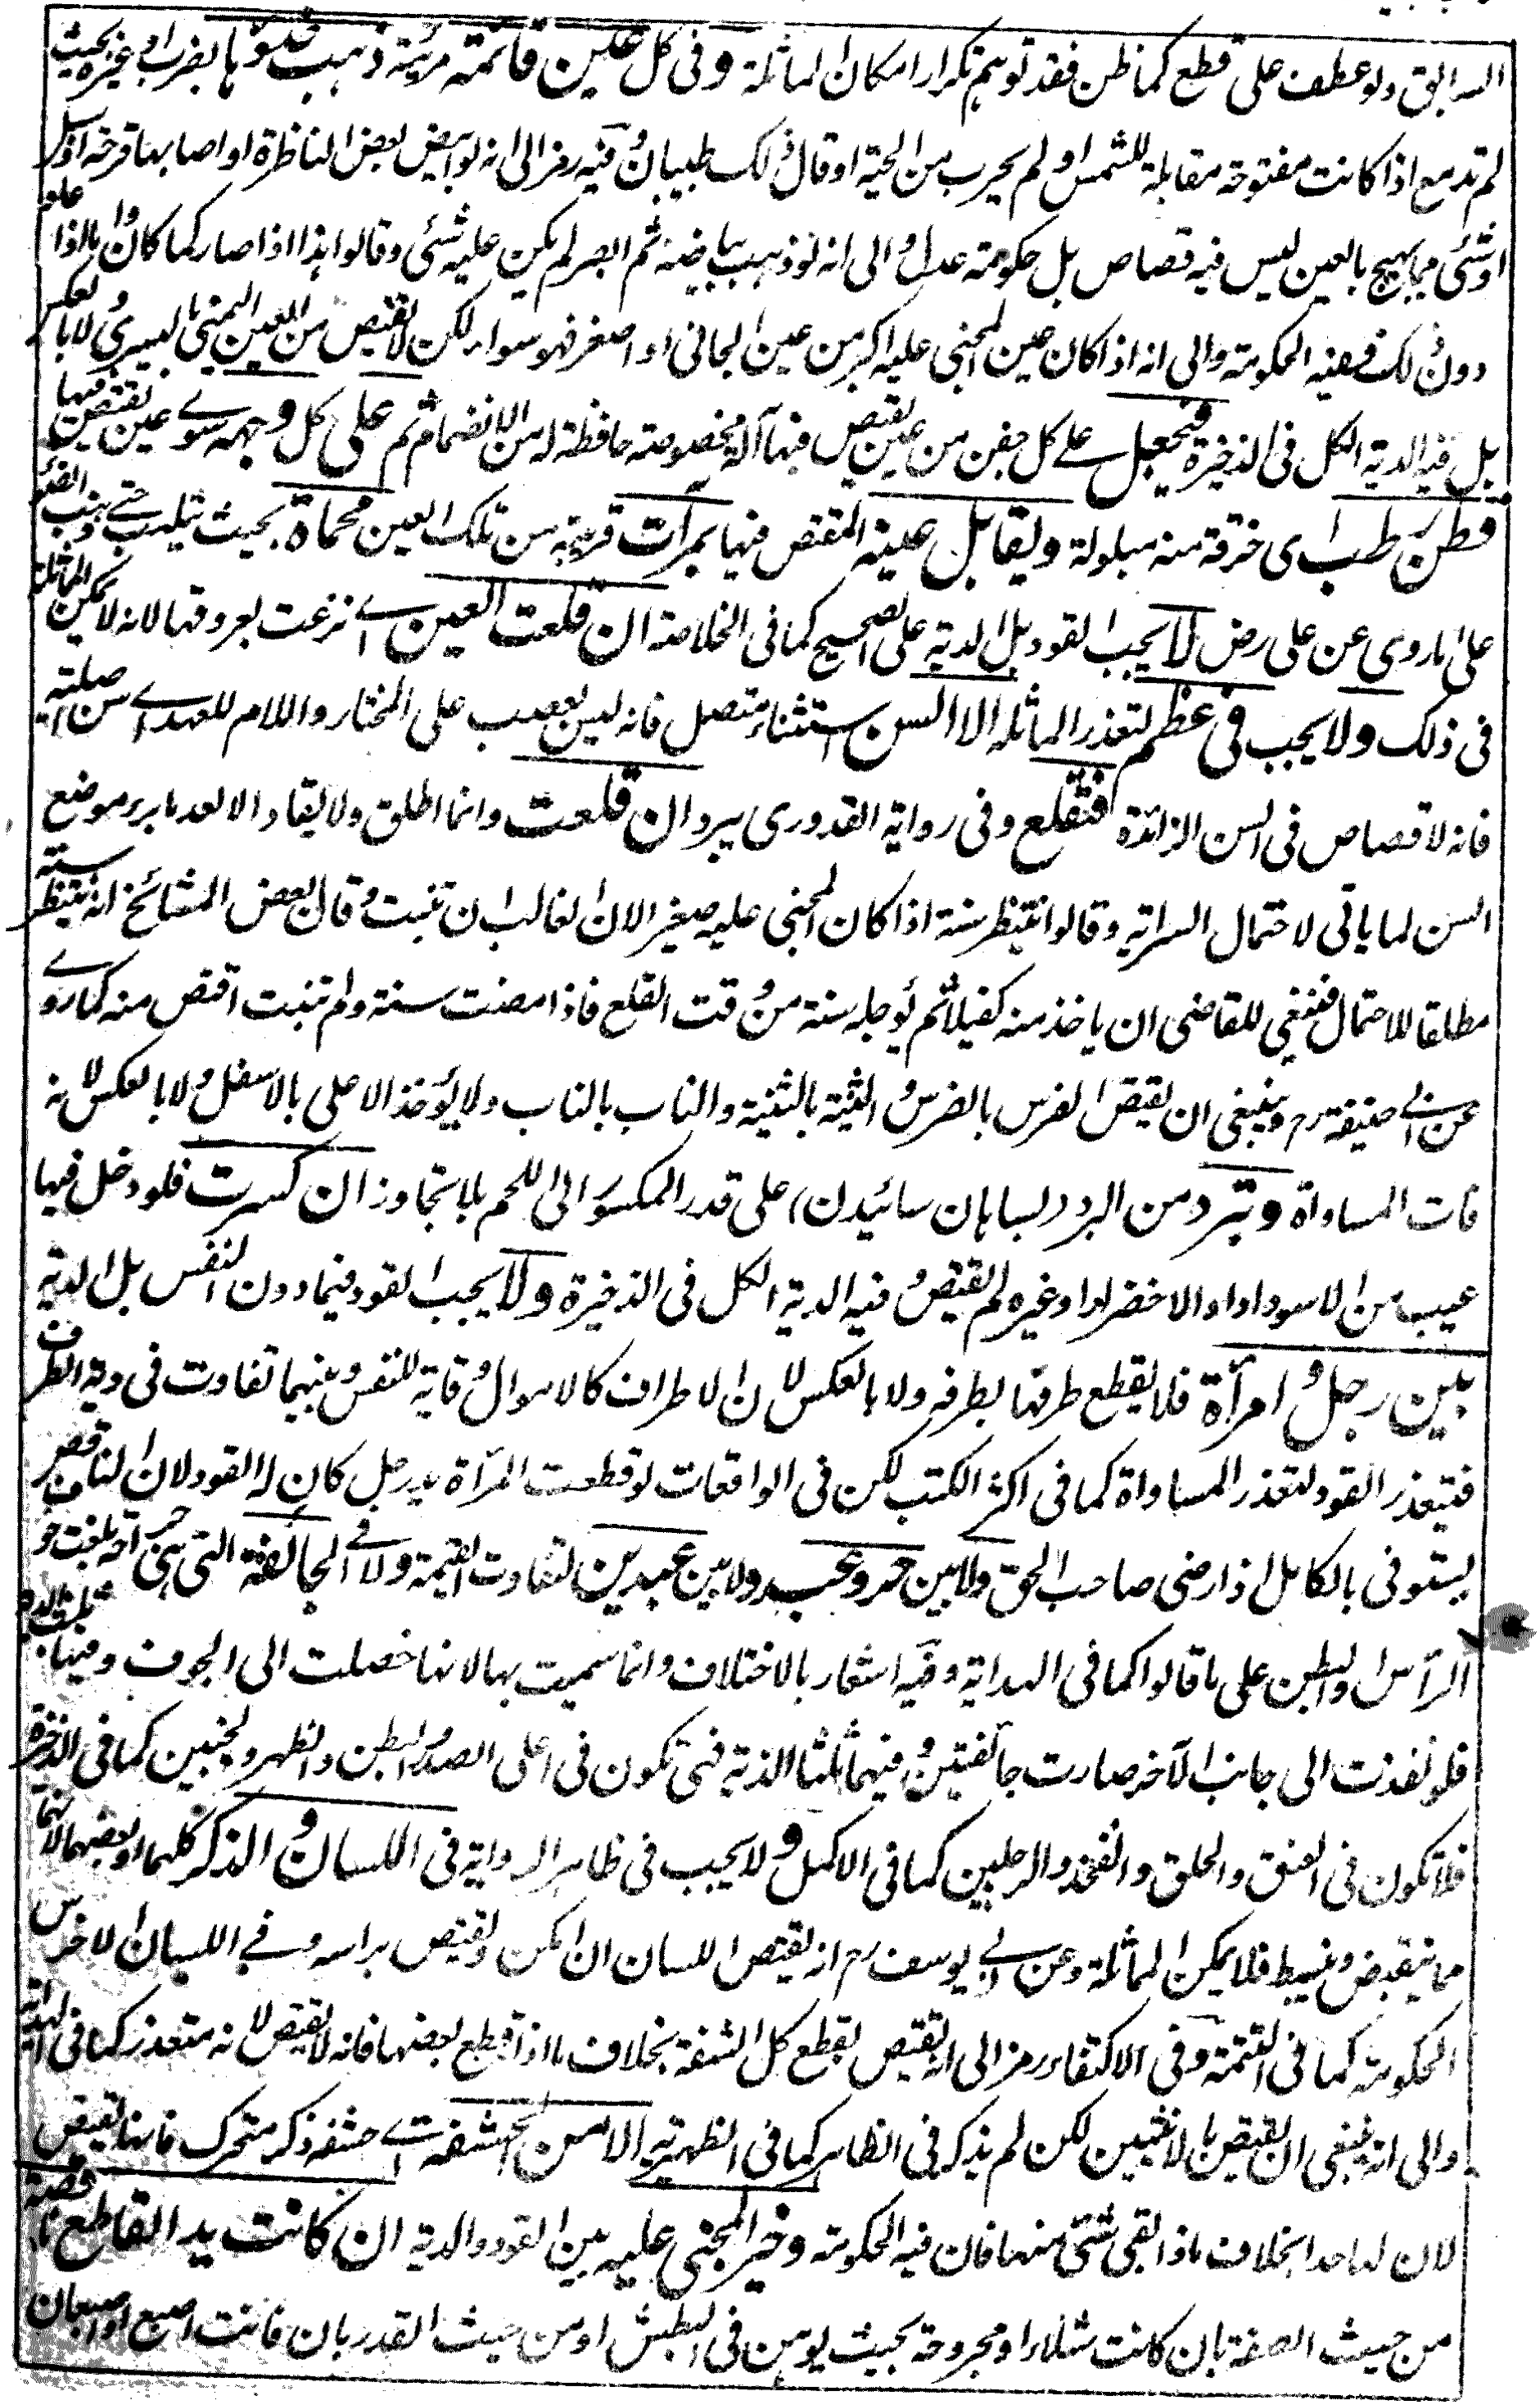 السابق ولو عطف على قطع كما ظن فقد توهم تكرار امكان المماثلة وفى كل عين قائمة مرئية ذهب ضوءها بضرب او غيره بحيث
لم تدمع اذا كانت مفتوحة مقابلة للشمس او لم يحرب من الحية او قال ذلك طبيبان وفيه رمز الى انه لو ابيض بعض الناظرة او اصابها قرحة او سبل
او شئ مما يهيج بالعين ليس فيه قصاص بل حكومة عدل والى انه لو ذهب بياضه ثم ابصر لم يكن عليه شئ وقالوا هذا اذا صار كما كان واما اذا عاد
دون ذلك ففيه الحكومة والى انه اذا كان عين المجنى عليه اكبر من عين الجانى او اصغر فهو سواء لكن لا يقتص من العين اليمنى باليسرى ولا بالعكس
بل فيه الدية الكل فى الذخيرة فيجعل على كل جفن من عين يقتص فيها آلة مخصوصة حافظة له من الانضمام ثم على كل وجهه سوى عين يقتص فيها
قطن رطب اى خرقة منه مبلولة ويقابل عينه المقتص فيها بمرآت قريبة من تلك العين محماة بحيث تلهب حتى يذهب الضوء
على ما روى عن على رض لا يجب القود بل الدية على الصحيح كما فى الخلاصة ان قلعت العين اى نزعت بعروقها لانه لا يمكن المماثلة
فى ذلك ولا يجب فى عظم لتعذر المماثلة الا السن استثناء متصل فانه ليس بعصب على المختار واللام للعهد اى سن اصلية
فانه لا قصاص فى السن الزائدة فتقلع وفى رواية القدورى يبرد ان قلعت وانما اطلق ولا يقاد الا بعد ما برء موضع
السن لما ياتى لاحتمال السراية وقالوا ينتظر سنة اذا كان المجنى عليه صغيرا لان الغالب ان تنبت وقال بعض المشائخ انه ينتظر سنة
مطلقا للاحتمال فينبغى للقاضى ان ياخذ منه كفيلا ثم يؤجله سنة من وقت القلع فاذا مضت سنة ولم تنبت اقتص منه كما روى
عن ابى حنيفة رح وينبغى ان يقتص الضرس بالضرس والثنية بالثنية والناب بالناب ولا يؤخذ الاعلى بالاسفل ولا بالعكس لانه
فات المساواة وتبرد من البرد (بسابان سائيدن) على قدر المكسور الى اللحم بلا تجاوز ان كسرت فلو دخل فيها
عيب من الاسوداد او الاخضرار او غيره لم يقتص وفيه الدية الكل فى الذخيرة ولا يجب القود فيما دون النفس بل الدية
بين رجل وامرأة فلا يقطع طرفها بطرفه ولا بالعكس لان الاطراف كالاموال وقاية للنفس وبينهما تفاوت فى دية الطرف
فتيعذر القود لتعذر المساواة كما فى اكثر الكتب لكن فى الواقعات لو قطعت المرأة يد رجل كان له القود لان الناقص
يستوفى بالكامل اذا رضى صاحب الحق ولا بين حر وعبد ولا بين عبدين لتفاوت القيمة ولا فى الجائفة التى هى جراحة بلغت جوف
الرأس او البطن على ما قالوا كما فى الهداية وفيه اشعار بالاختلاف وانما سميت بها لانها حصلت الى الجوف وفيها ثلث الدية
فلو نفذت الى جانب الآخر صارت جائفتين وفيهما ثلثا الدية فهى تكون فى اعلى الصدر والبطن والظهر والجنبين كما فى الذخيرة
فلا تكون فى العنق والحلق والفخذ والرجلين كما فى الاكمل ولا يجب فى ظاهر الرواية فى اللسان والذكر كلهما او بعضهما لانهما
مما ينقبض وينبسط فلا يمكن المماثلة وعن ابى يوسف رح انه يقتص اللسان ان امكن ويقتص براسه وفى اللسان الاخرس
الحكومة كما فى التتمة وفى الاكتفاء رمز الى انه يقتص بقطع كل الشفة بخلاف ما اذا قطع بعضها فانه لا يقتص لانه متعذر كما فى الهداية
والى انه ينبغى ان يقتص بالانثيين لكن لم يذكر فى الظاهر كما فى الظهيرية الا من الحشفة اى حشفة ذكر متحرك فانها يقتص
لان لها حدا بخلاف ما اذا بقى شئ منها فان فيه الحكومة وخير المجنى عليه بين القود والدية ان كانت يد القاطع ناقصة
من حيث الصفة بان كانت شلاء او مجروحة بحيث يوهن فى البطش او من حيث القدر بان فاتت اصبع او اصبعان